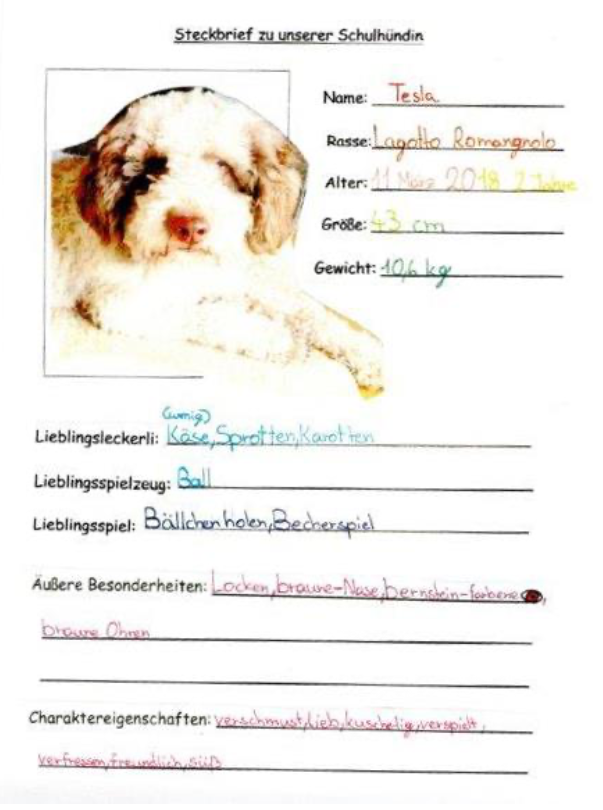 Steckbrief zu unserer Schulhündin
Name: Tesla
Rasse: Lagotto Romangnolo
Alter: 11 März 2018 2 Jahre
Größe: 43 cm
Gewicht: 10,6 kg
Lieblingsleckerli: Käse, Sprotten, Karotten
Lieblingsspielzeug: Ball
Lieblingsspiel: Bällchen holen, Becherspiel
Äußere Besonderheiten: Locken, braune-Nase, bernstein-farbene
braune Ohren
Charaktereigenschaften: verschmust, lieb, kuschelig, verspielt,
verfressen, freundlich, süß